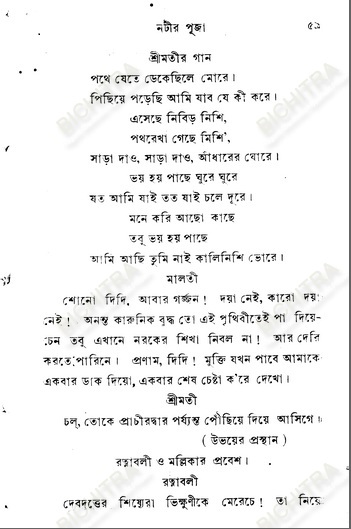 নটীর পূজা ৫৯
শ্রীমতীর গান
পথে যেতে ডেকেছিলে মোরে।
পিছিয়ে পড়েছি আমি যাব যে কী করে।
এসেছে নিবিড় নিশি,
পথরেখা গেছে মিশি',
সাড়া দাও, সাড়া দাও, আঁধারের ঘোরে।
ভয় হয় পাছে ঘুরে ঘুরে
যত আমি যাই তত যাই চলে দূরে।
মনে করি আছো কাছে
তবু ভয় হয় পাছে
আমি আছি তুমি নাই কালিনিশি ভোরে।
মালতী
শোনো দিদি, আবার গর্জ্জন! দয়া নেই, কারো দয়া
নেই! অনন্ত কারুনিক বুদ্ধ তো এই পৃথিবীতেই পা দিয়ে-
চেন তবু এখানে নরকের শিখা নিবল না! আর দেরি
করতে পারিনে। প্রণাম, দিদি! মুক্তি যখন পাবে আমাকে
একবার ডাক দিয়ো, একবার শেষ চেষ্টা ক'রে দেখো।
শ্রীমতী
চল্, তোকে প্রাচীরদ্বার পর্য্যন্ত পৌঁছিয়ে দিয়ে আসিগে।
( উভয়ের প্রস্থান )
রত্নাবলী ও মল্লিকার প্রবেশ।
রত্নাবলী
দেবদত্তের শিষ্যেরা ভিক্ষুণীকে মেরেচে! তা নিয়ে
BICHITRA
BICHITRA
BICHITRA
BICHITRA